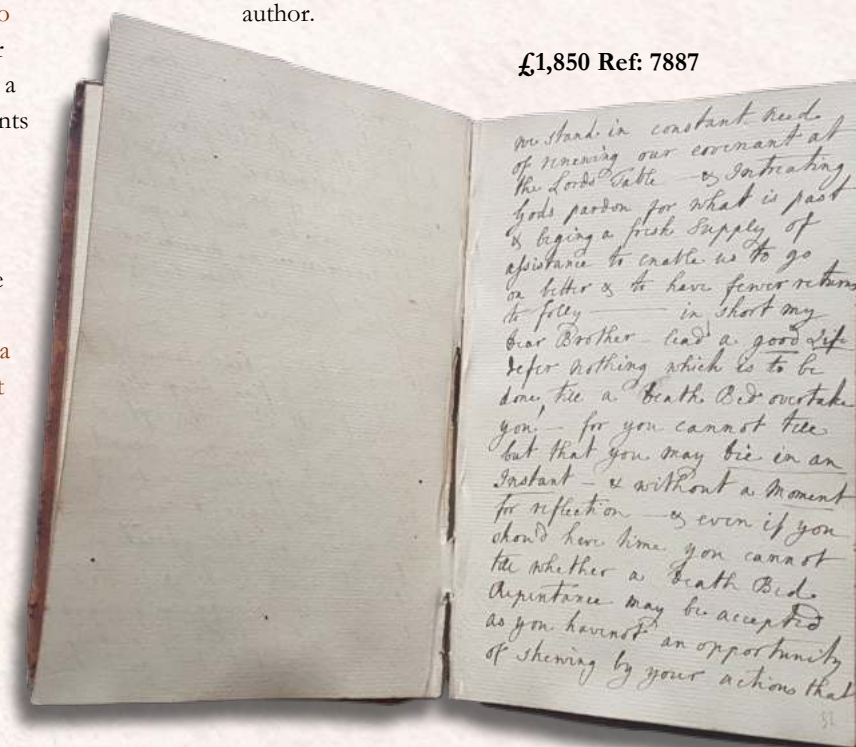 author.
o
r
a
nts
e
a
t
£1,850 Ref: 7887
we stand in constant need
of renewing our covenant at
the Lords Table — & Intreating
Gods pardon for what is past
& beging a fresh Supply of
assistance to enable us to go
on better & to have fewer returns
to folly ——— in short my
Dear Brother – lead a good Life
defer nothing which is to be
done, till a Death Bed overtake
you – for you cannot tell
but that you may die in an
Instant – & without a Moment
for reflection — & even if you
shoud have time you cannot
tell whether a Death Bed
Repentance may be accepted
as you havenot an opportunity
of shewing by your actions that